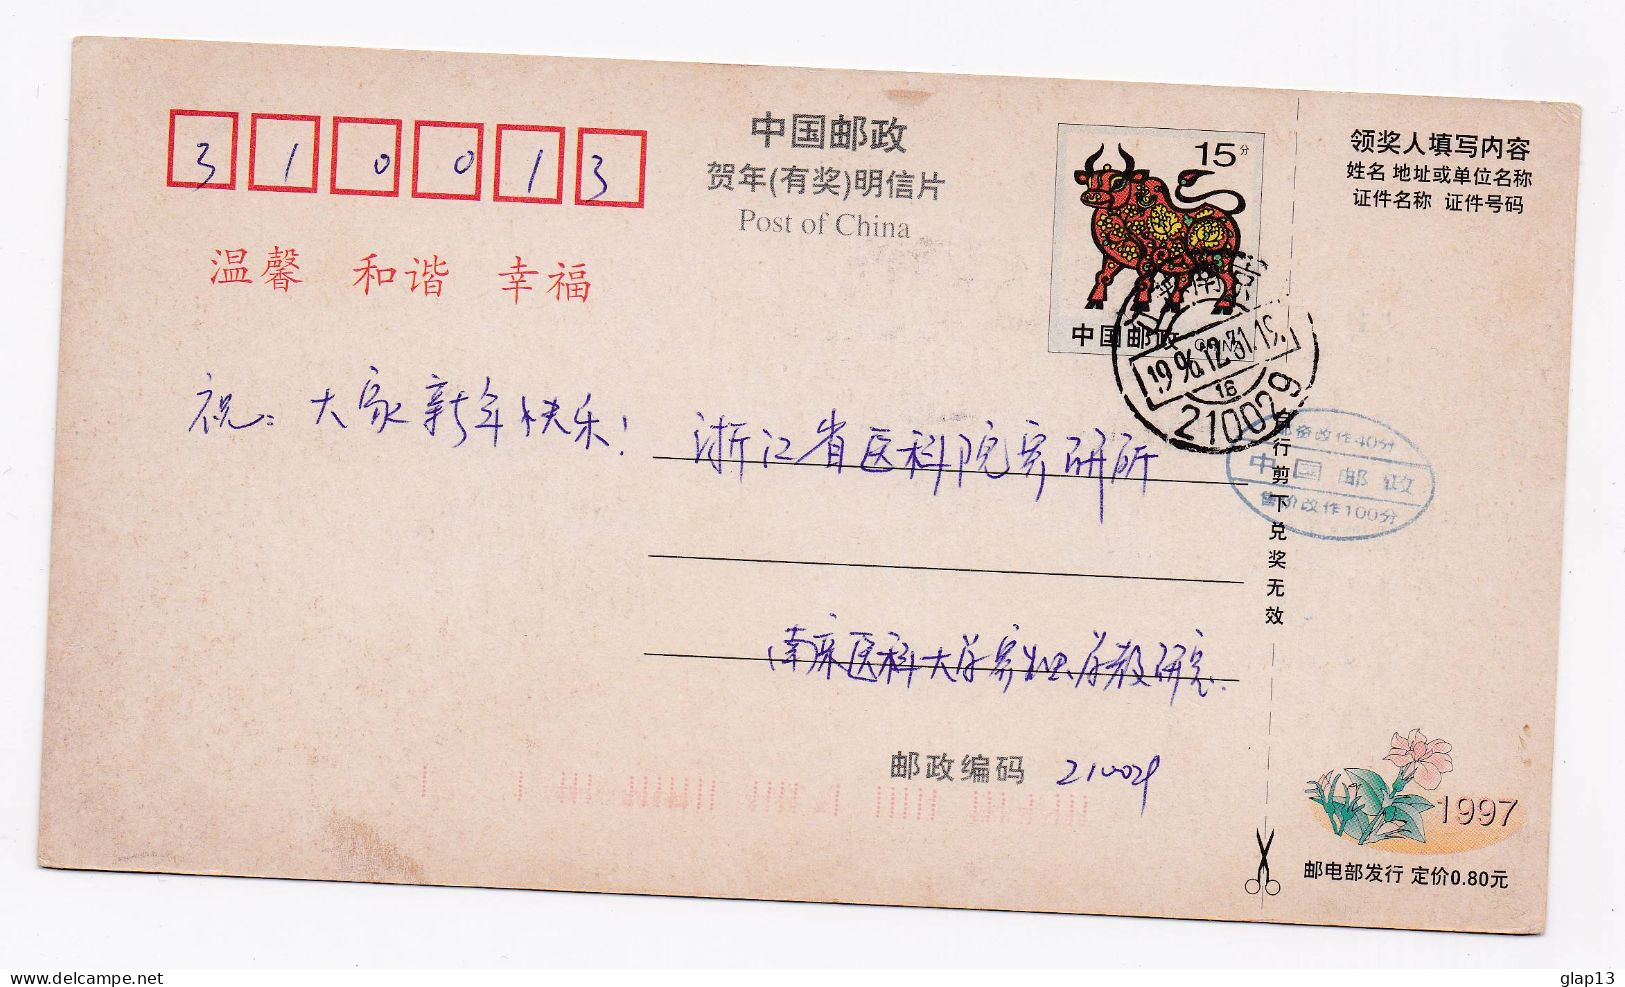 310013
中国邮政
贺年(有奖)明信片
Post of China
15分
中国邮政
领奖人填写内容
姓名 地址或单位名称
证件名称 证件号码
温馨 和谐 幸福
祝：大家新年快乐！
浙江省医科院寄研所
江苏南京
1996.12.31.19
16
210029
邮资改作40分
中国邮政
售价改作100分
自行剪下兑奖无效
南京医科大学寄生虫学教研室
邮政编码 210029
1997
邮电部发行 定价0.80元
glap13